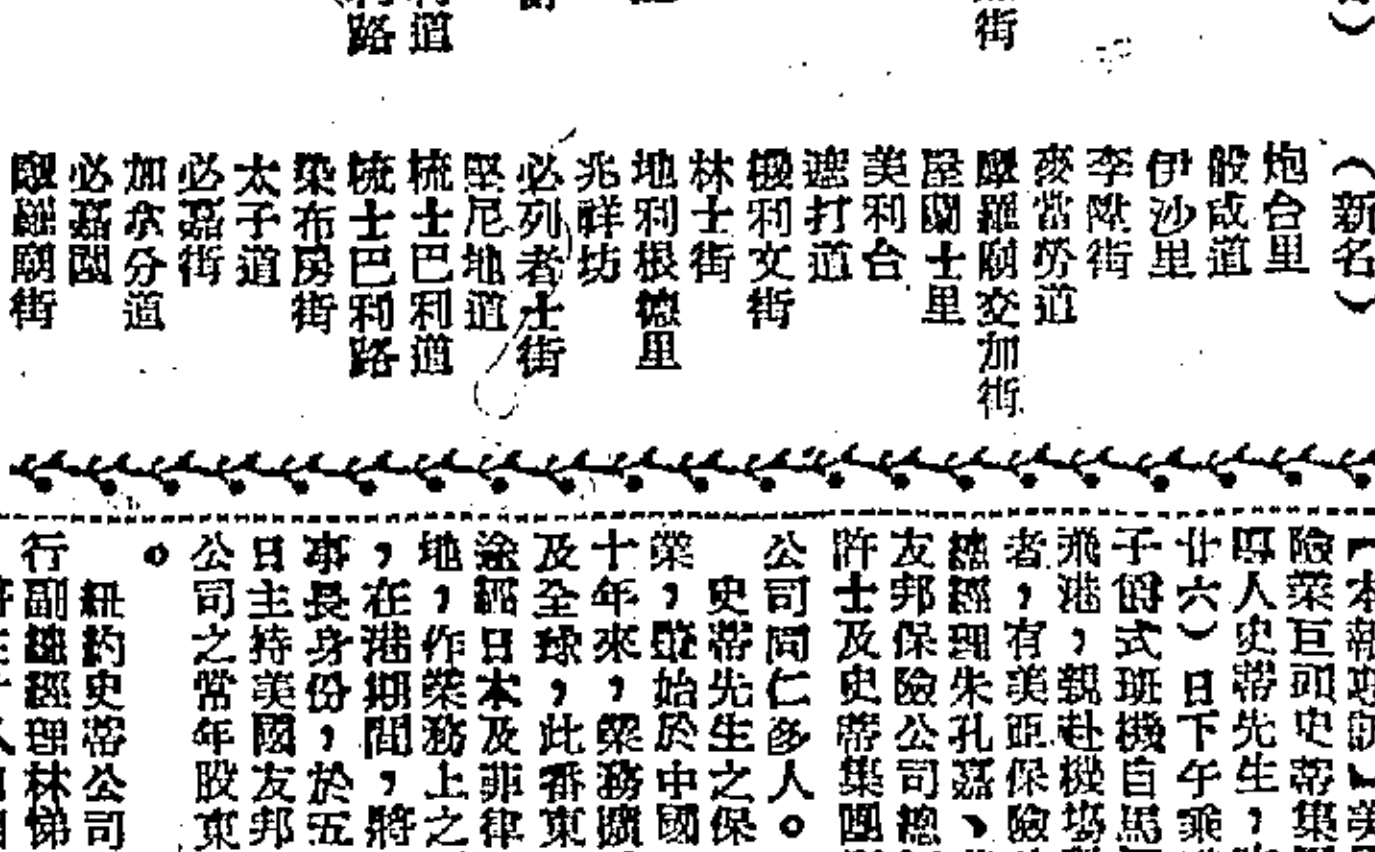 路
道
街
（新名）
炮台里
般咸道
伊沙里
李陞街
麥當勞道
摩羅廟交加街
屋蘭士里
美利台
遮打道
機利文街
林士街
地利根德里
兆祥坊
必列者士街
堅尼地道
梳士巴利道
梳士巴利路
染布房街
太子道
必嘉街
加拿分道
必嘉圍
廟街
【本報專訊】美
險業巨頭史蒂集團
辦人史蒂先生，
廿六）日下午乘
子爵式班機自馬
飛港，親赴機場
者，有美亞保險
總經理朱孔嘉、
友邦保險公司總
許士及史蒂集團
公司同仁多人。
史蒂先生之保
業，肇始於中國
十年來，業務擴
及全球，此番東
途經日本及菲律
地，作業務上之
，在港期間，將
事長身份，於五
日主持美國友邦
公司之常年股東
。
紐約史蒂公司
行副總經理林悌